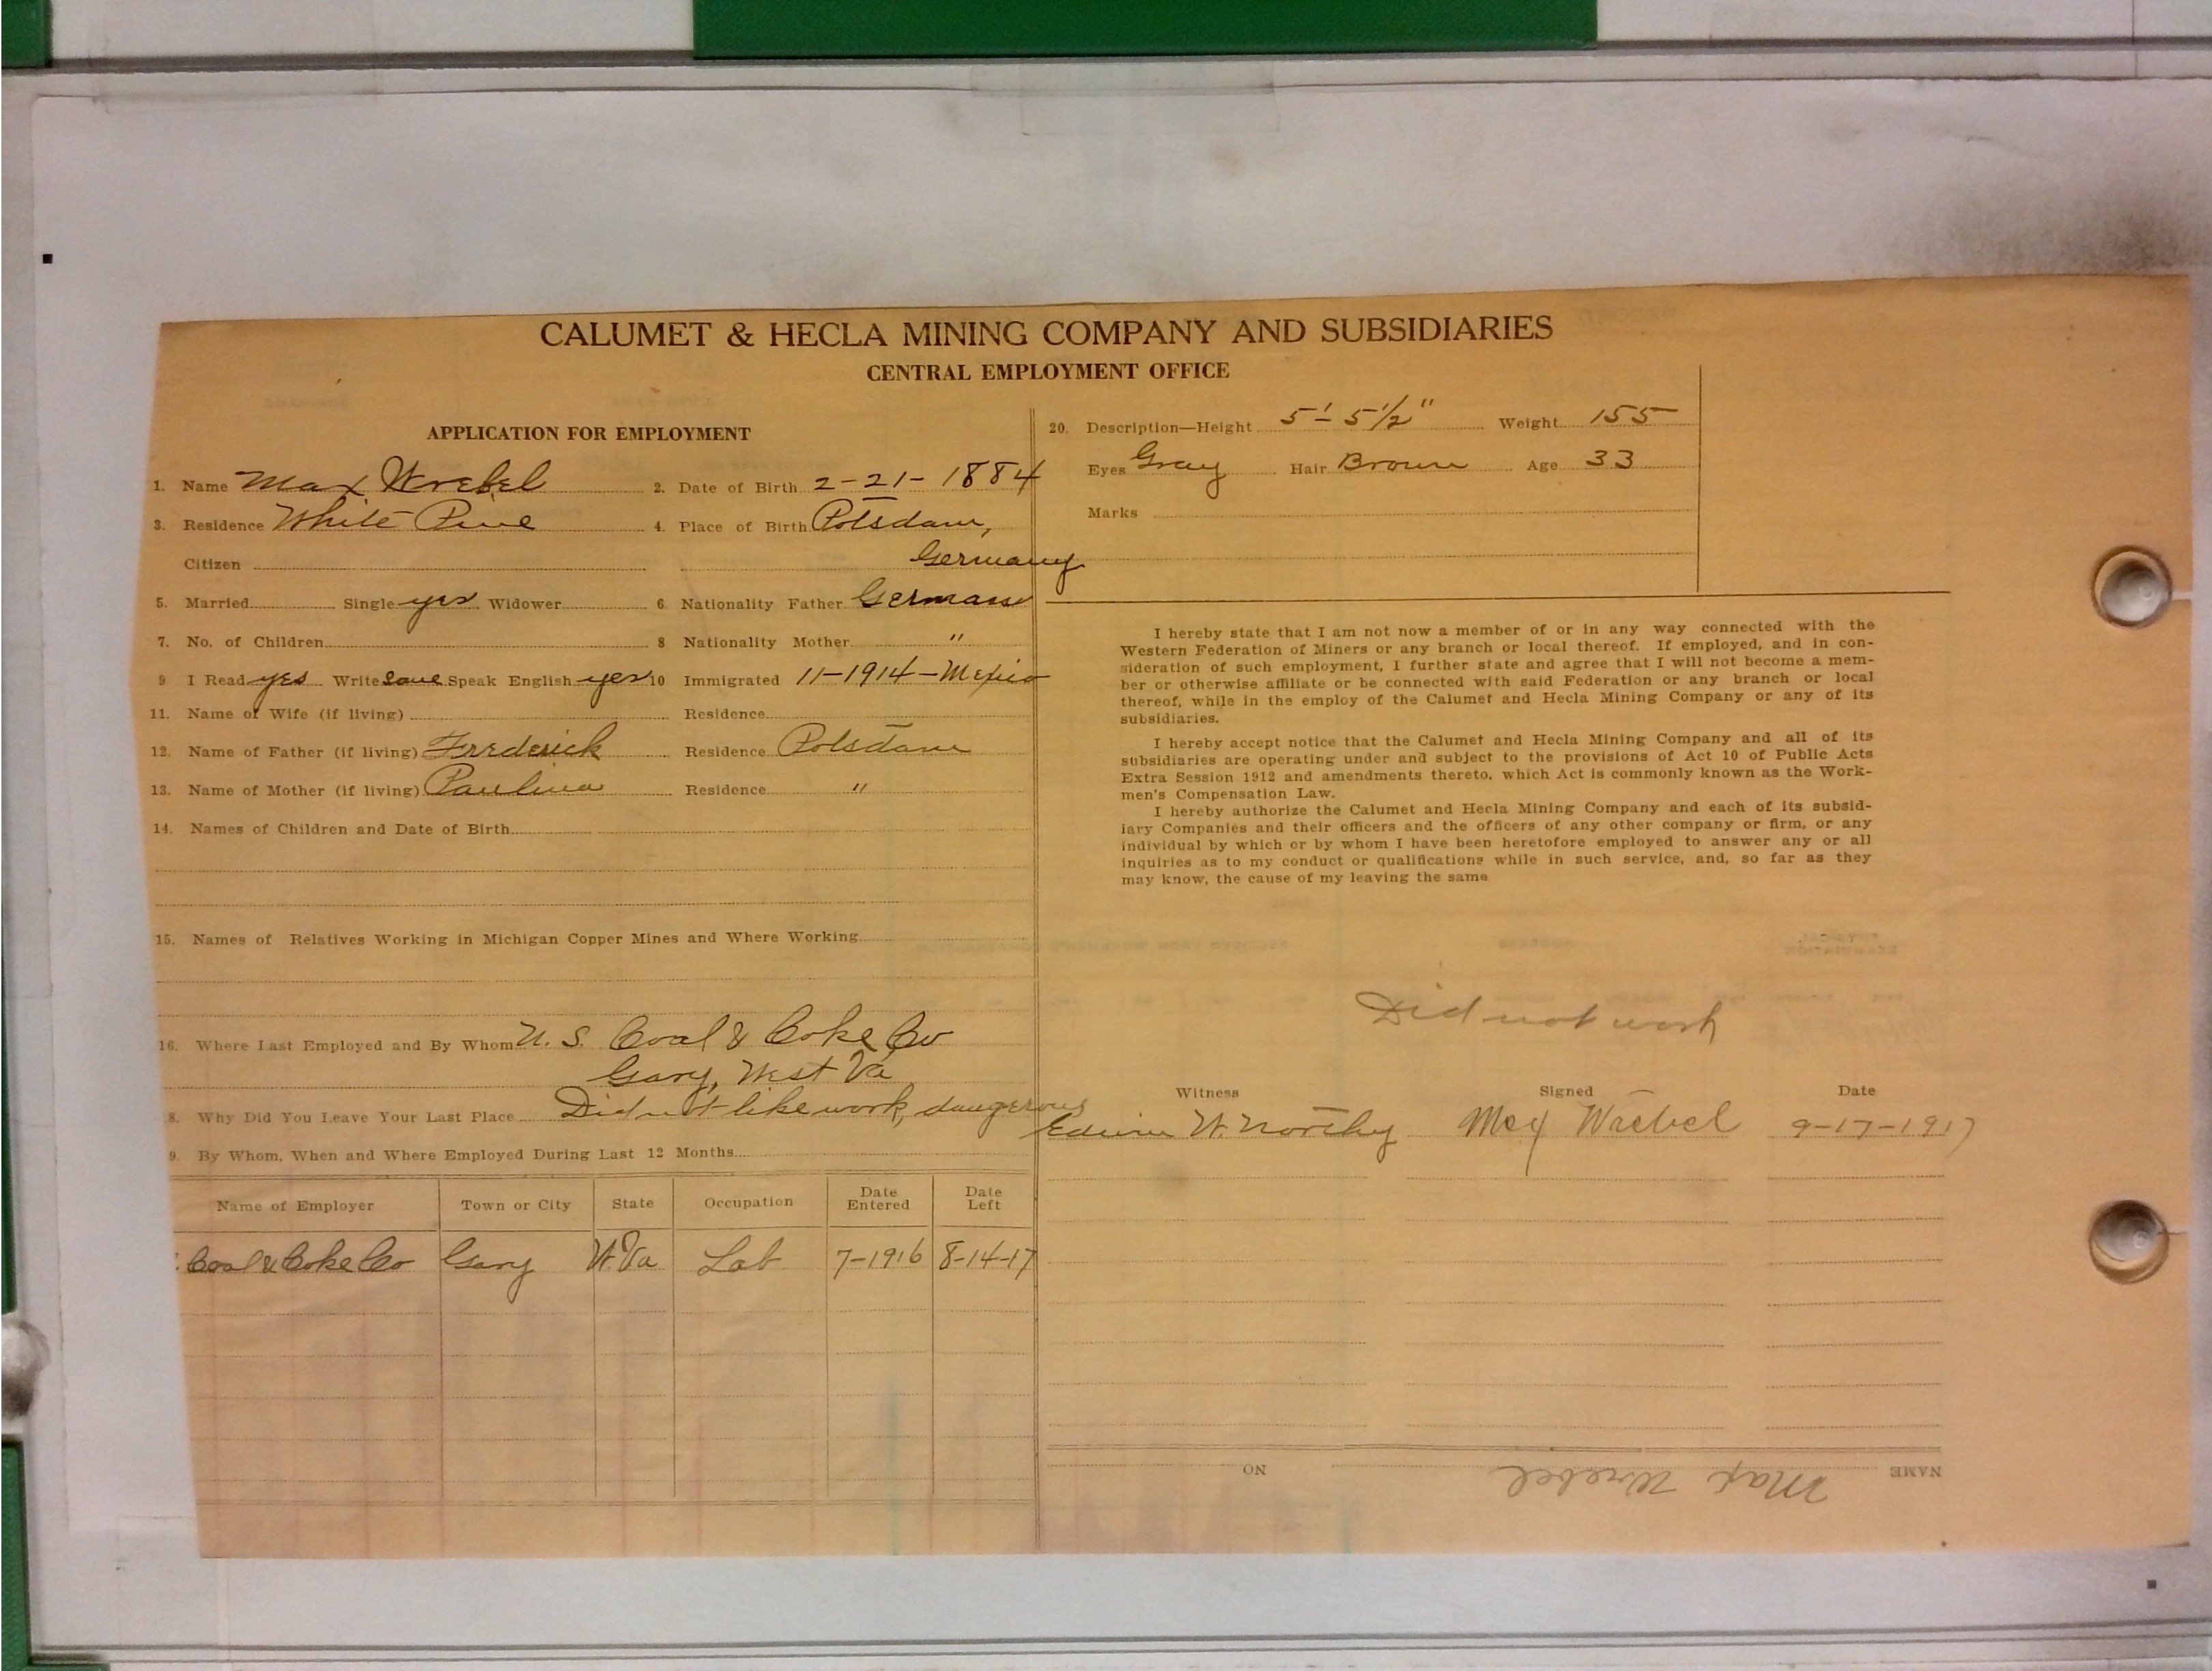 CALUMET & HECLA MINING COMPANY AND SUBSIDIARIES
CENTRAL EMPLOYMENT OFFICE
APPLICATION FOR EMPLOYMENT
1. Name Max Wrebel 2. Date of Birth 2-21-1884
3. Residence White Pine 4. Place of Birth Potsdam,
Citizen Germany
5. Married Single yes Widower 6. Nationality Father German
7. No. of Children 8 Nationality Mother "
9 I Read yes Write same Speak English yes 10 Immigrated 11-1914-Mexico
11. Name of Wife (if living) Residence
12. Name of Father (if living) Frederick Residence Potsdam
13. Name of Mother (if living) Paulina Residence "
14. Names of Children and Date of Birth
15. Names of Relatives Working in Michigan Copper Mines and Where Working
16. Where Last Employed and By Whom U. S. Coal & Coke Co
Gary, West Va
8. Why Did You Leave Your Last Place Did not like work, dangerous
9. By Whom, When and Where Employed During Last 12 Months
Name of Employer Town or City State Occupation Date Entered Date Left
Coal & Coke Co Gary W.Va Lab 7-1916 8-14-17
20. Description—Height 5'-5½" Weight 155
Eyes Gray Hair Brown Age 33
Marks
I hereby state that I am not now a member of or in any way connected with the
Western Federation of Miners or any branch or local thereof. If employed, and in con-
sideration of such employment, I further state and agree that I will not become a mem-
ber or otherwise affiliate or be connected with said Federation or any branch or local
thereof, while in the employ of the Calumet and Hecla Mining Company or any of its
subsidiaries.
I hereby accept notice that the Calumet and Hecla Mining Company and all of its
subsidiaries are operating under and subject to the provisions of Act 10 of Public Acts
Extra Session 1912 and amendments thereto, which Act is commonly known as the Work-
men's Compensation Law.
I hereby authorize the Calumet and Hecla Mining Company and each of its subsid-
iary Companies and their officers and the officers of any other company or firm, or any
individual by which or by whom I have been heretofore employed to answer any or all
inquiries as to my conduct or qualifications while in such service, and, so far as they
may know, the cause of my leaving the same
Did not work
Witness Signed Date
Edwin W. Northy Max Wrebel 9-17-1917
NAME Max Wrebel NO